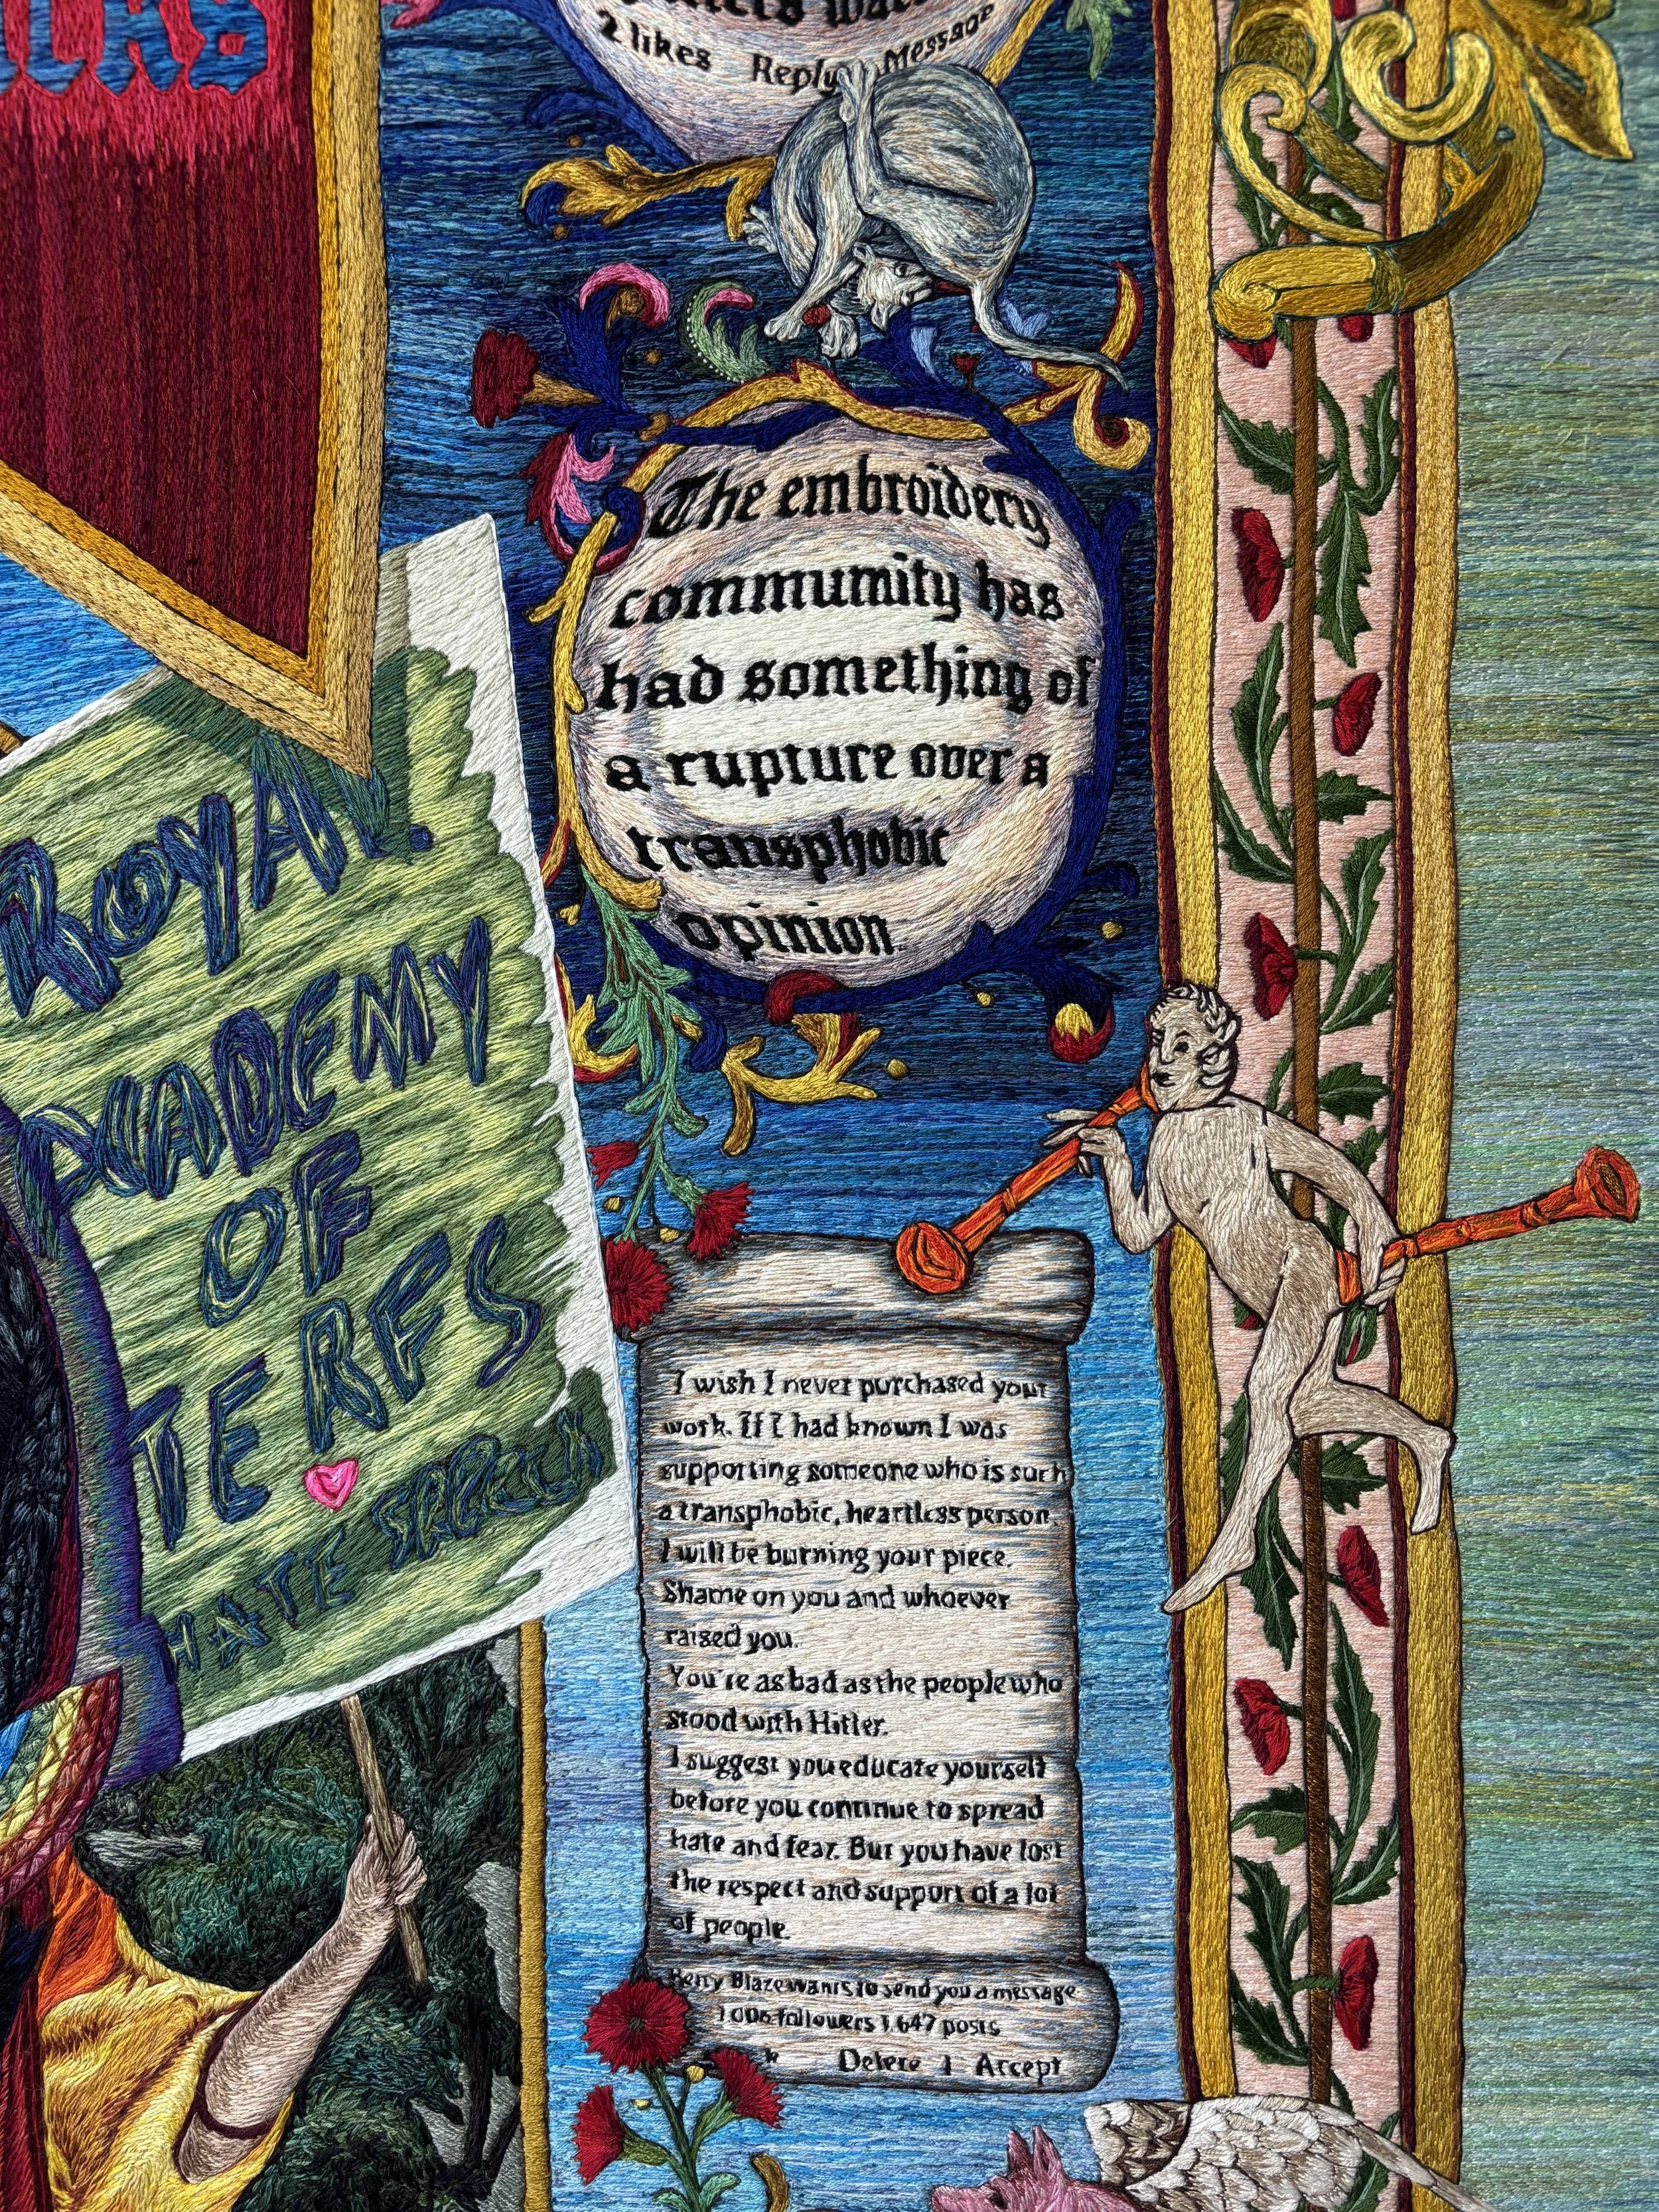 2 likes Reply Message
The embroidery
community has
had something of
a rupture over a
transphobic
opinion.
ROYAL
ACADEMY
OF
TERFS
HATE
I wish I never purchased your
work. If I had known I was
supporting someone who is such
a transphobic, heartless person.
I will be burning your piece.
Shame on you and whoever
raised you.
You're as bad as the people who
stood with Hitler.
I suggest you educate yourself
before you continue to spread
hate and fear. But you have lost
the respect and support of a lot
of people.
Blaze wants to send you a message
1,006 followers 1,647 posts
Delete | Accept